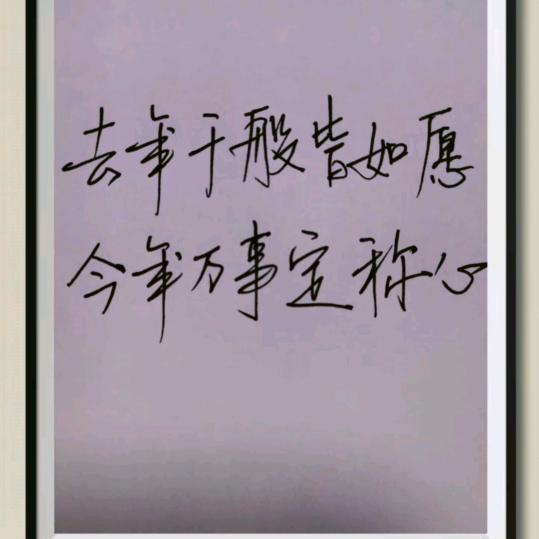 去年千般皆如愿
今年万事定称心